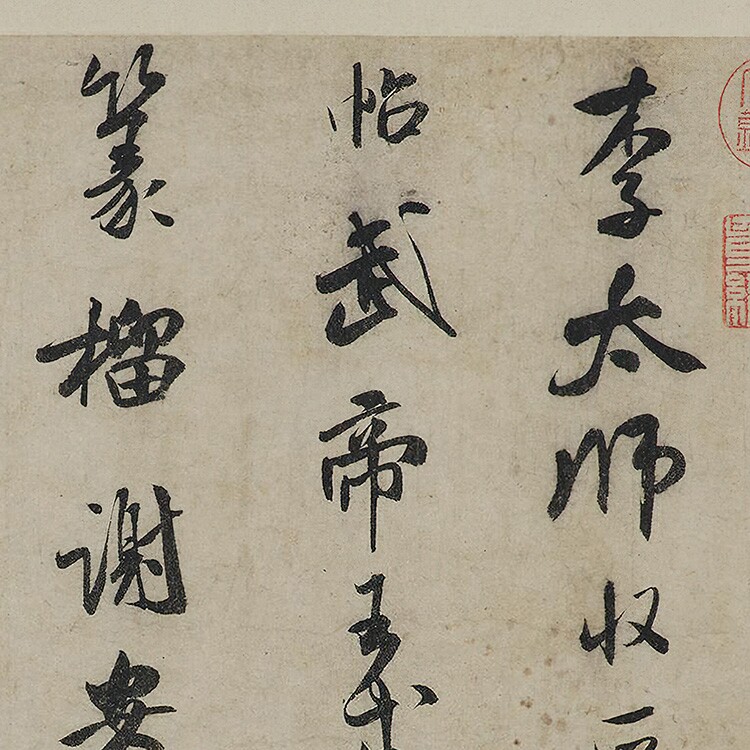 李太師收
帖武帝王
篆榴謝安